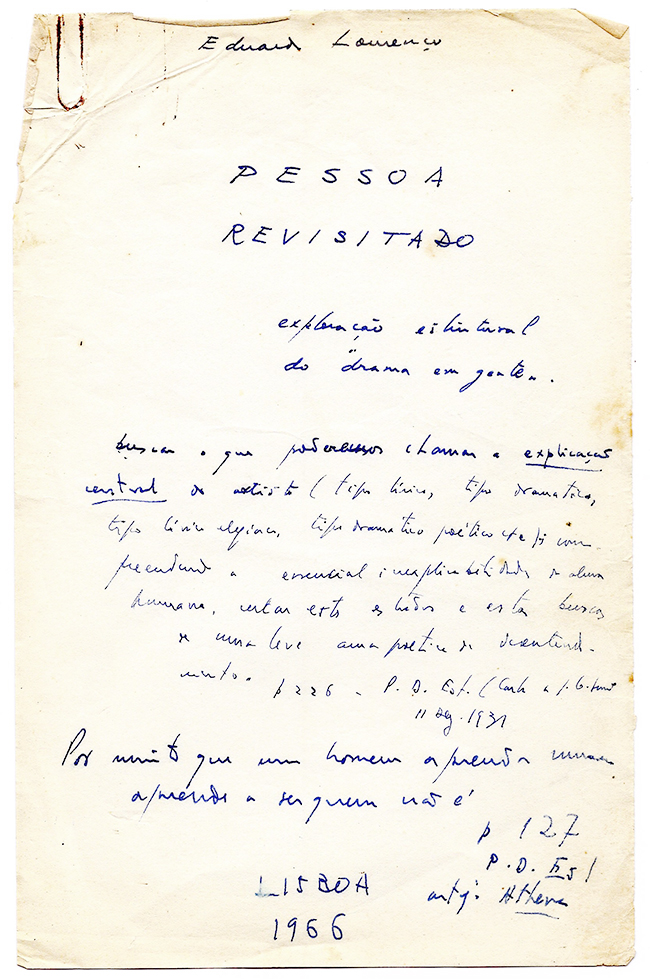 Eduardo Lourenço
PESSOA
REVISITADO
exploração estrutural
do "drama em gente".
buscar o que poderemos chamar a explicação
central do artista (tipo lírico, tipo dramático,
tipo lírico elegíaco, tipo dramático poético com-
preendendo a essencial inexplicabilidade da alma
humana, cercar estes estudos e estas buscas
de uma leve aura poética de desentendi-
mento.
p 226 - P. D. Est. (Carta a J. G.
11 Dez. 1931
Por muito que um homem aprenda nunca
aprende a ser quem não é
p 127
P. D. Est
artº: Athena
LISBOA
1966